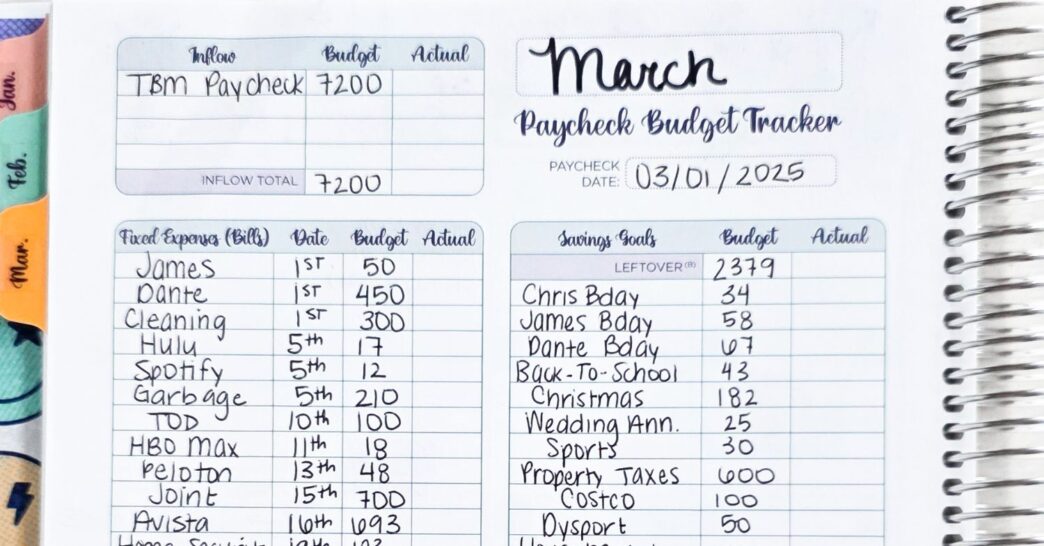 Jan.
Feb.
Mar.
Inflow Budget Actual
TBM Paycheck 7200
INFLOW TOTAL 7200
March
Paycheck Budget Tracker
PAYCHECK
DATE: 03/01/2025
Fixed Expenses (Bills) Date Budget Actual
James 1ST 50
Dante 1ST 450
Cleaning 1ST 300
Hulu 5th 17
Spotify 5th 12
Garbage 5th 210
TOD 10th 100
HBO Max 11th 18
Peloton 13th 48
Joint 15th 700
Avista 16th 693
Savings Goals Budget Actual
LEFTOVER (B) 2379
Chris Bday 34
James Bday 58
Dante Bday 67
Back-To-School 43
Christmas 182
Wedding Ann. 25
Sports 30
Property Taxes 600
Costco 100
Dysport 50